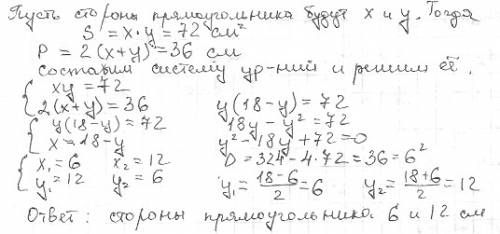 Пусть стороны прямоугольника будут x и y. Тогда
S = x · y = 72 см²
P = 2(x+y) = 36 см
составим систему ур-ний и решим её.
{ xy = 72
{ 2(x+y) = 36 y(18-y) = 72
{ y(18-y) = 72 18y - y² = 72
{ x = 18-y y² - 18y + 72 = 0
{ x₁ = 6 x₂ = 12 D = 324 - 4·72 = 36 = 6²
{ y₁ = 12 y₂ = 6 y₁ = (18-6)/2 = 6 y₂ = (18+6)/2 = 12
Ответ: стороны прямоугольника 6 и 12 см